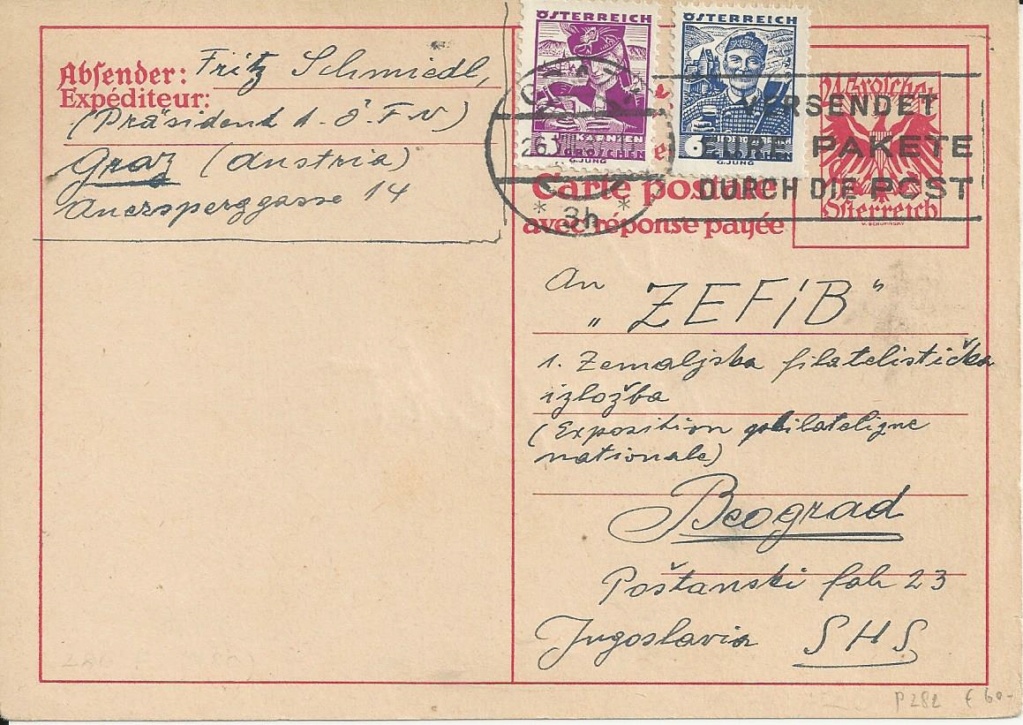 Absender: Fritz Schmiedl,
Expéditeur:
(Präsident d. I. F. V)
Graz (Austria)
Auersperggasse 14
ÖSTERREICH
KÄRNTEN
GROSCHEN
G. JUNG
ÖSTERREICH
6
G. JUNG
24 Groschen
Österreich
26.VII.37
* 3h *
VERSENDET
EURE PAKETE
DURCH DIE POST
Carte postale
avec réponse payée
An
„ZEFIB"
1. Zemaljska filatelistička
izložba
(Exposition philatelique
nationale)
Beograd
Poštanski fah 23
Jugoslavia SHS
P282 € 60-